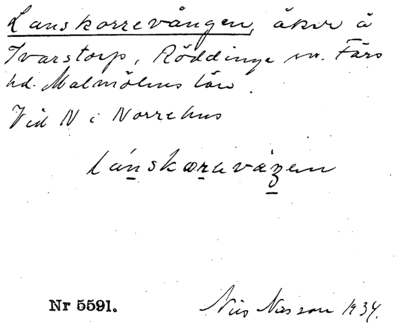 Lanskorrevången, åker å
Ivarstorp, Röddinge sn. Färs
hd. Malmöhus län.
Vid N i Norrehus
lánskoravàŋen
Nr 5591.
Nils Nesson 1934.